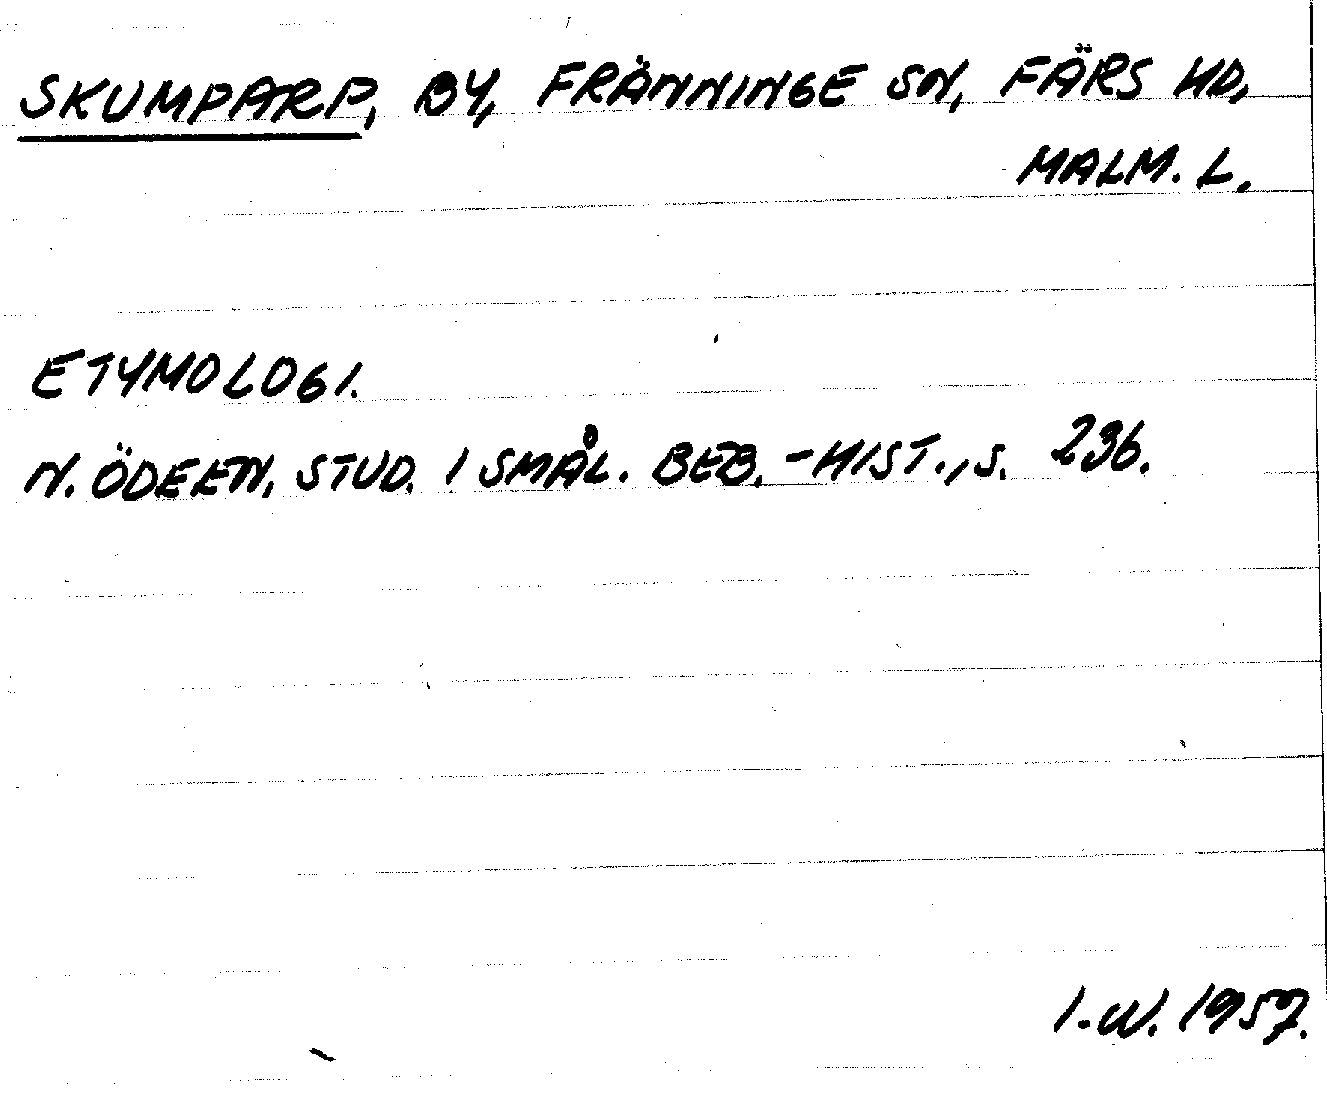 SKUMPARP, BY, FRÄNNINGE SN, FÄRS HD,
MALM. L.
ETYMOLOGI.
N. ÖDEEN, STUD. I SMÅL. BEB.-HIST., S. 236.
I.W. 1957.